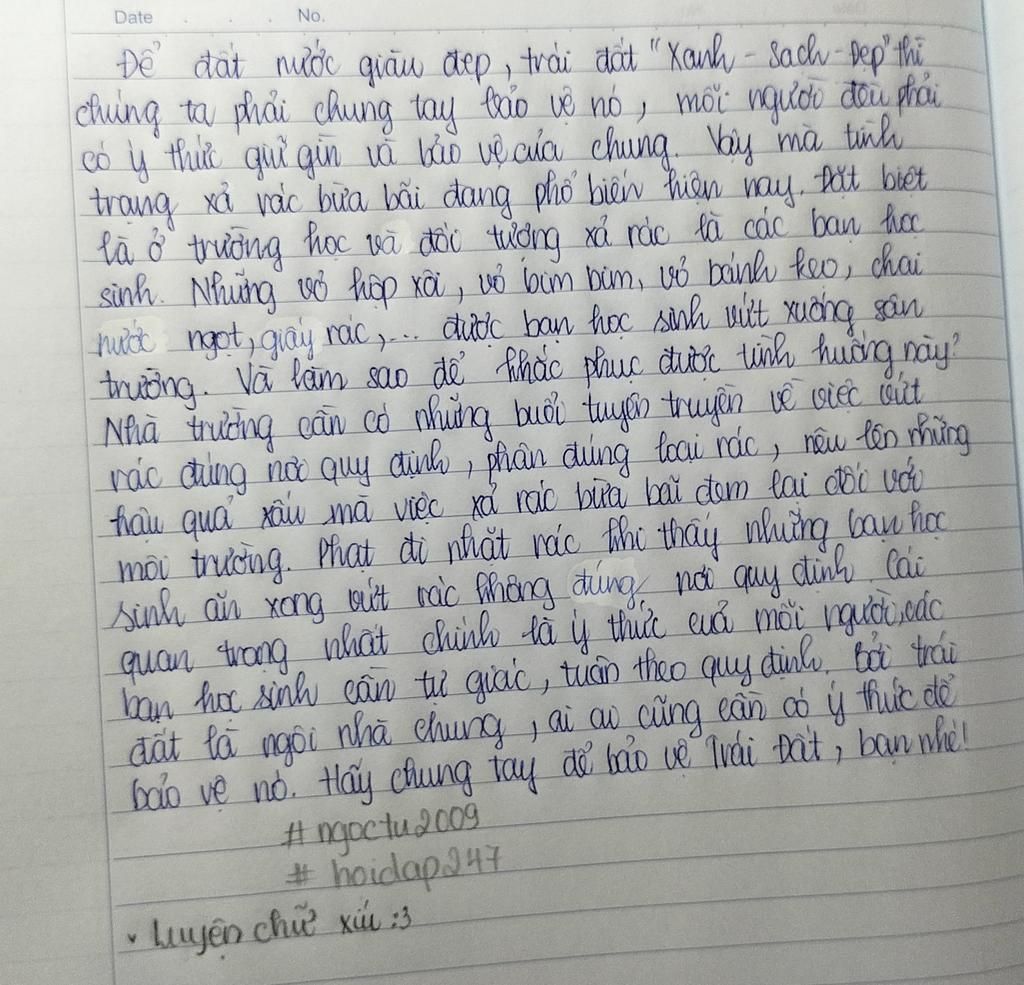 Date . . . No.
Để đất nước giàu đẹp, trái đất "Xanh - Sạch - Đẹp" thì
chúng ta phải chung tay bảo vệ nó, mỗi người đều phải
có ý thức giữ gìn và bảo vệ của chung. Vậy mà tình
trạng xả rác bừa bãi đang phổ biến hiện nay. Đặt biệt
là ở trường học và đối tượng xả rác là các bạn học
sinh. Những vỏ hộp xôi, vỏ bim bim, vỏ bánh kẹo, chai
nước ngọt, giấy rác,... được bạn học sinh vứt xuống sân
trường. Và làm sao để khắc phục được tình huống này?
Nhà trường cần có những buổi tuyên truyền về việc vứt
rác đúng nơi quy định, phân đúng loại rác, nêu lên những
hậu quả xấu mà việc xả rác bừa bãi đem lại đối với
môi trường. Phạt đi nhặt rác khi thấy những bạn học
sinh ăn xong vứt rác không đúng nơi quy định. Cái
quan trọng nhất chính là ý thức cuả mỗi người, các
bạn học sinh cần tự giác, tuân theo quy định. Bởi trái
đất là ngôi nhà chung, ai ai cũng cần có ý thức để
bảo vệ nó. Hãy chung tay để bảo vệ Trái Đất, bạn nhé!
#ngoctu2009
#hoidap247
Luyện chữ xíu :3